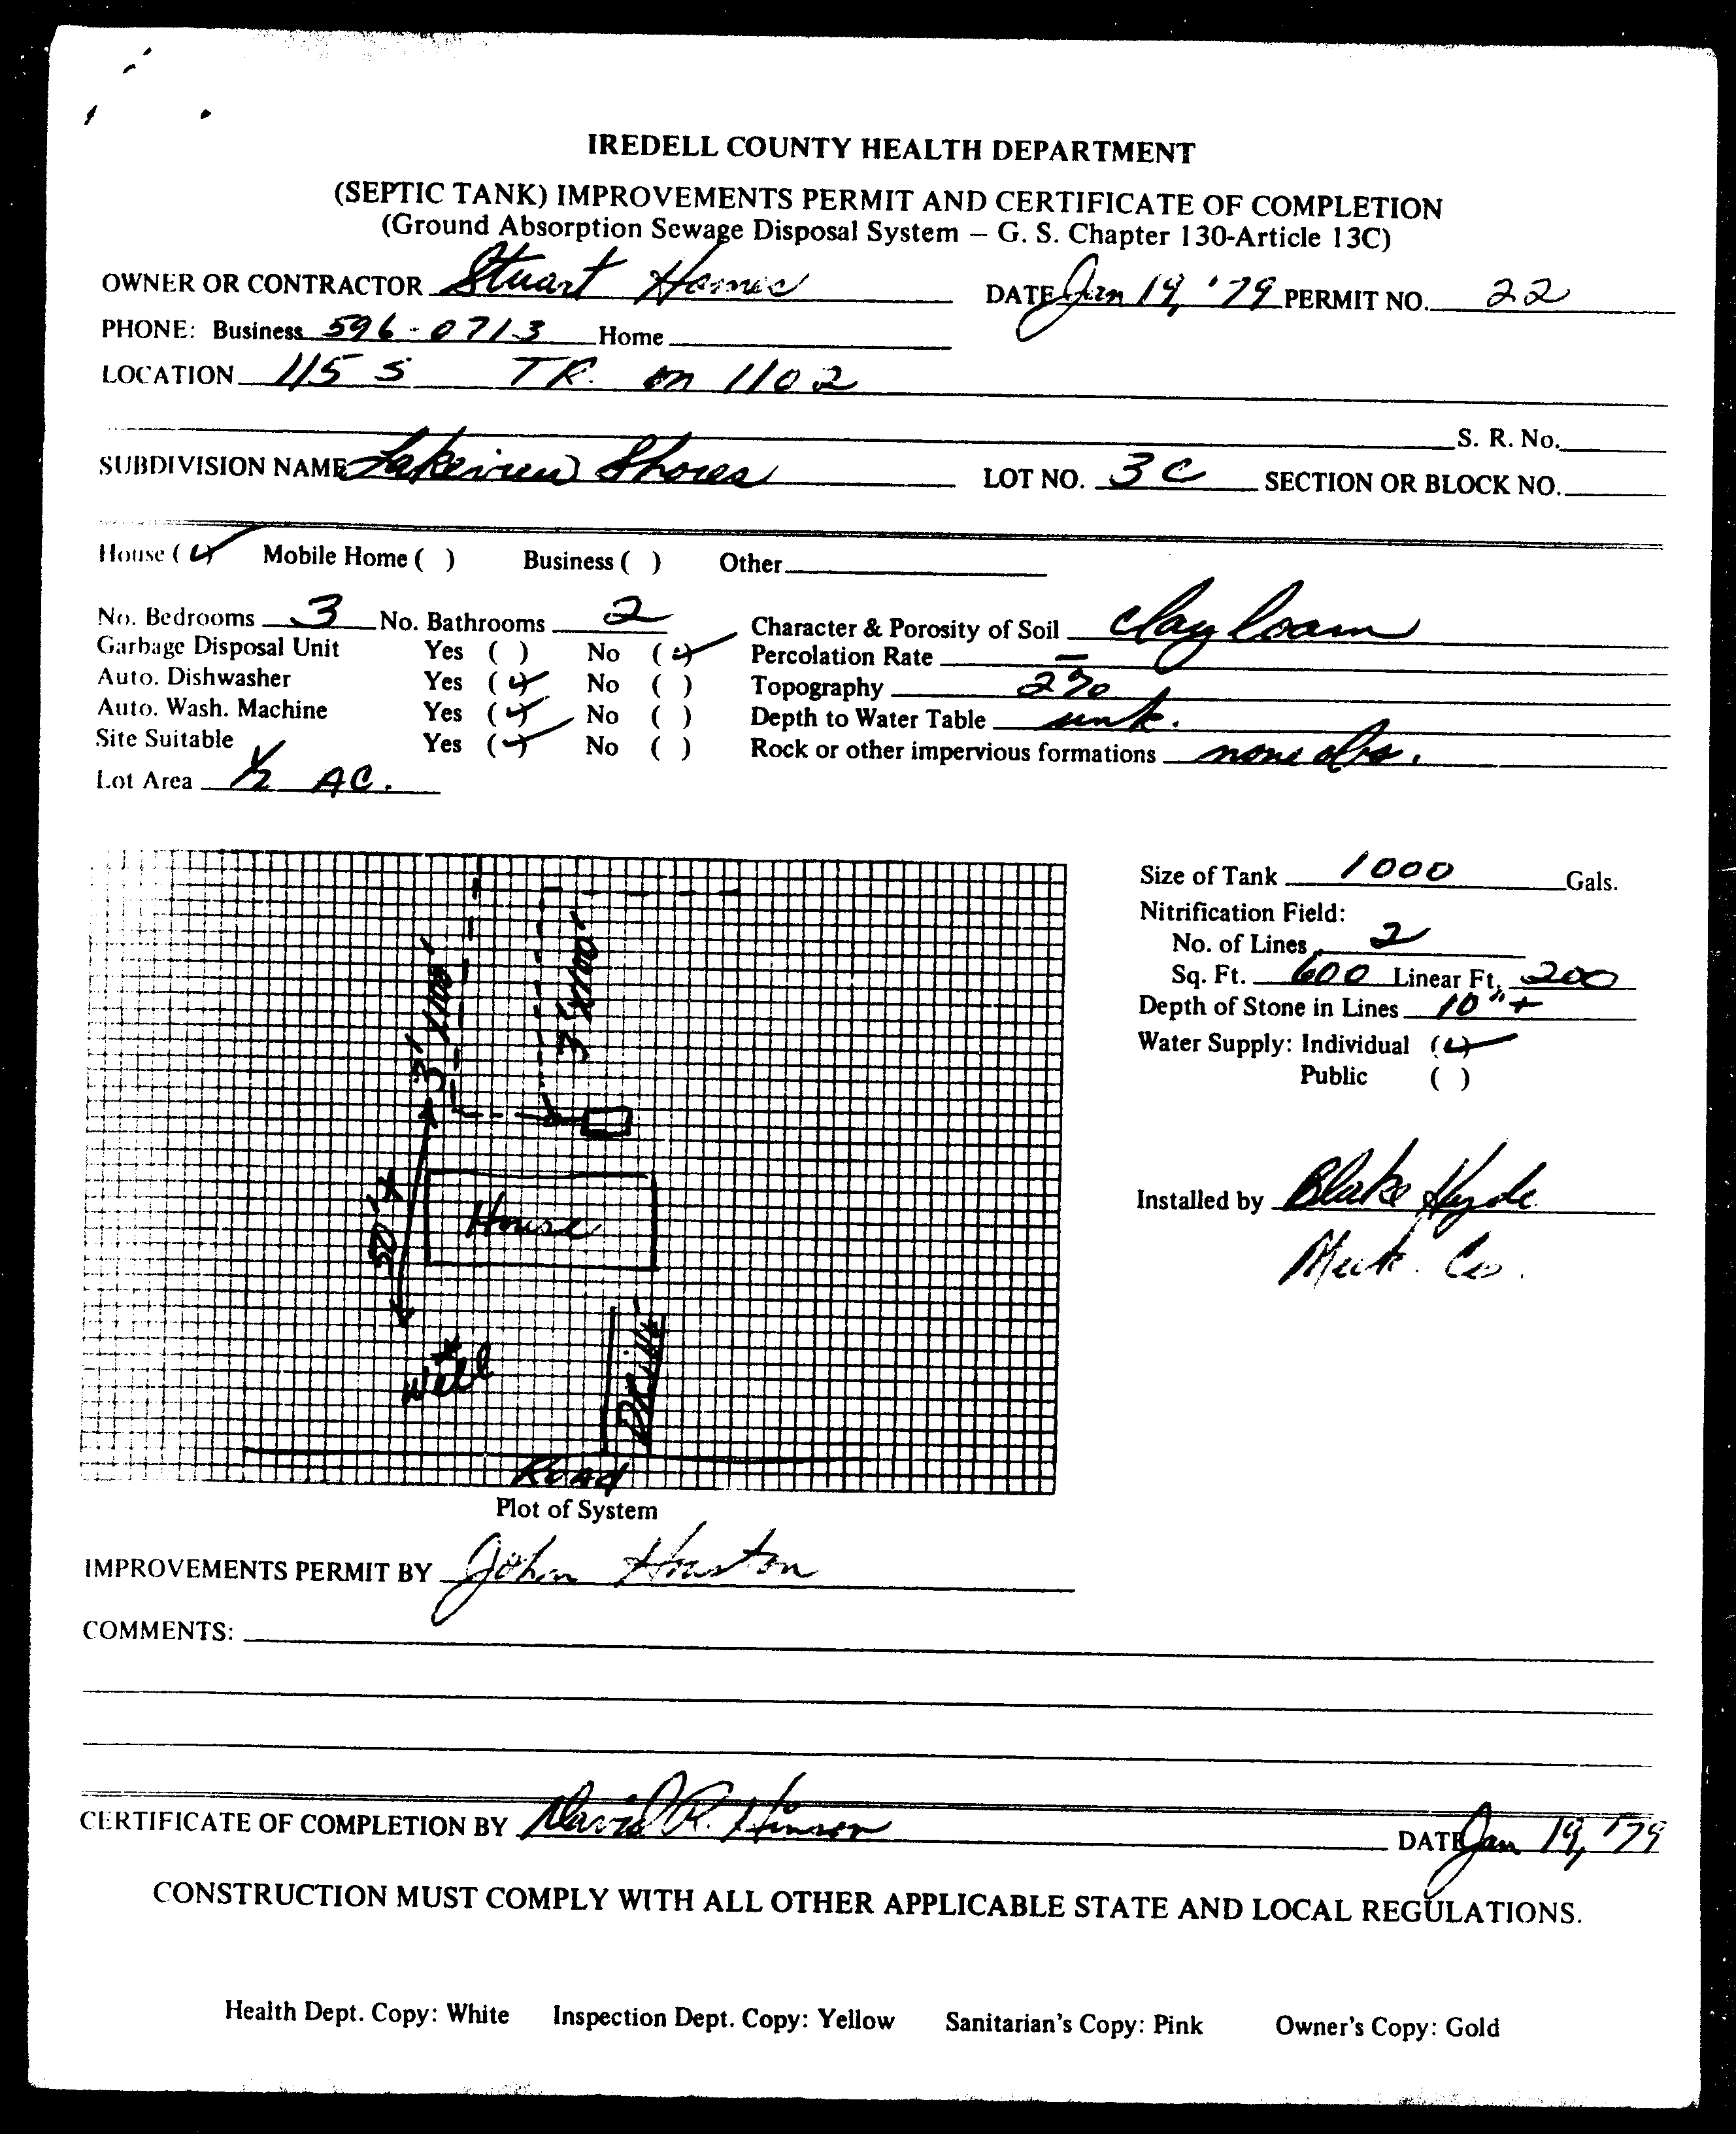 IREDELL COUNTY HEALTH DEPARTMENT
(SEPTIC TANK) IMPROVEMENTS PERMIT AND CERTIFICATE OF COMPLETION
(Ground Absorption Sewage Disposal System – G. S. Chapter 130-Article 13C)
OWNER OR CONTRACTOR Stuart Homes DATE Jan 19, '79 PERMIT NO. 22
PHONE: Business 596-0713 Home
LOCATION 115 S TR. on 1102
S. R. No.
SUBDIVISION NAME Lakeview Shores LOT NO. 3C SECTION OR BLOCK NO.
House (✓) Mobile Home ( ) Business ( ) Other
No. Bedrooms 3 No. Bathrooms 2 Character & Porosity of Soil clay loam
Garbage Disposal Unit Yes ( ) No (✓) Percolation Rate —
Auto. Dishwasher Yes (✓) No ( ) Topography 2%
Auto. Wash. Machine Yes (✓) No ( ) Depth to Water Table unk.
Site Suitable Yes (✓) No ( ) Rock or other impervious formations none obs.
Lot Area 1/2 AC.
Size of Tank 1000 Gals.
Nitrification Field:
No. of Lines 2
Sq. Ft. 600 Linear Ft. 200
Depth of Stone in Lines 10"+
Water Supply: Individual (✓)
Public ( )
Installed by Blake Hyde
Meck. Co.
3'X100'
3'X100'
50'+
House
Well
Drive
Road
Plot of System
IMPROVEMENTS PERMIT BY John Houston
COMMENTS:
CERTIFICATE OF COMPLETION BY David R. Hinson DATE Jan 19, '79
CONSTRUCTION MUST COMPLY WITH ALL OTHER APPLICABLE STATE AND LOCAL REGULATIONS.
Health Dept. Copy: White Inspection Dept. Copy: Yellow Sanitarian's Copy: Pink Owner's Copy: Gold